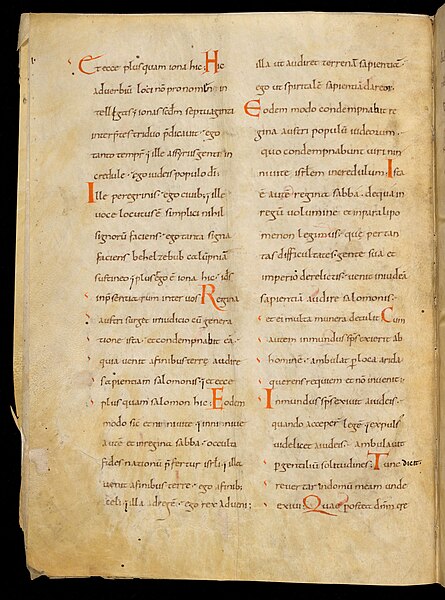 Et ecce plus quam iona hic. Hic
aduerbiũ loci nõ pronomen in
tellegas. ionas scd̃m septuaginta
interp̃tes triduo p̃dicauit. ego
tanto tempr̃. ille assyriis genti in
credule. ego iudeis populo dĩ.
Ille peregrinis. ego ciuib; ille
uoce locutus ẽ simplici nihil
signorũ faciens. ego tanta signa
faciens behelzebub calũpniã
sustineo. plus ẽgo ẽ iona hic.
inp̃sentiarum inter uos. Regina
austri surget in iudicio cũ genera
tione ista. et condempnabit eã.
quia uenit a finibus terrẽ audire
sapientiam salomonis. et ecce
plus quam salomon hic. Eodem
modo sic et niniuite. niniuite
autẽ et in regina sabba. occulta
fides nationũ p̃fertur isrl̃i. illa
uenit a finibus terre. ego a finib;
celi. illa ad regẽ. ego rex adueni:
illa ut audiret terrenã sapientiã.
ego ut spiritalẽ sapientiã darem.
Eodem modo condempnabit re
gina austri populũ iudeorum.
quo condempnabunt uiri nin
niuite isrl̃em incredulum. Ista
ẽ autẽ regina sabba. de qua in
regũ uolumine et in paralipo
menon legimus. quẽ per tan
tas difficultates. gente sua et
imperio derelictis. uenit in iudeã
sapientiã audire salomonis.
et ei multa munera detulit. Cum
autem inmundus sp̃s exierit ab
homine. ambulat p loca arida
querens requiem et nõ inuenit.
Inmundus sp̃s exiuit a iudeis.
quando acceper̃ legẽ. expuls
uidelicet a iudeis. ambulauit
p gentiliũ solitudines. Tunc dicit.
reuertar in domũ meam unde
exiui. Quae postea dñm